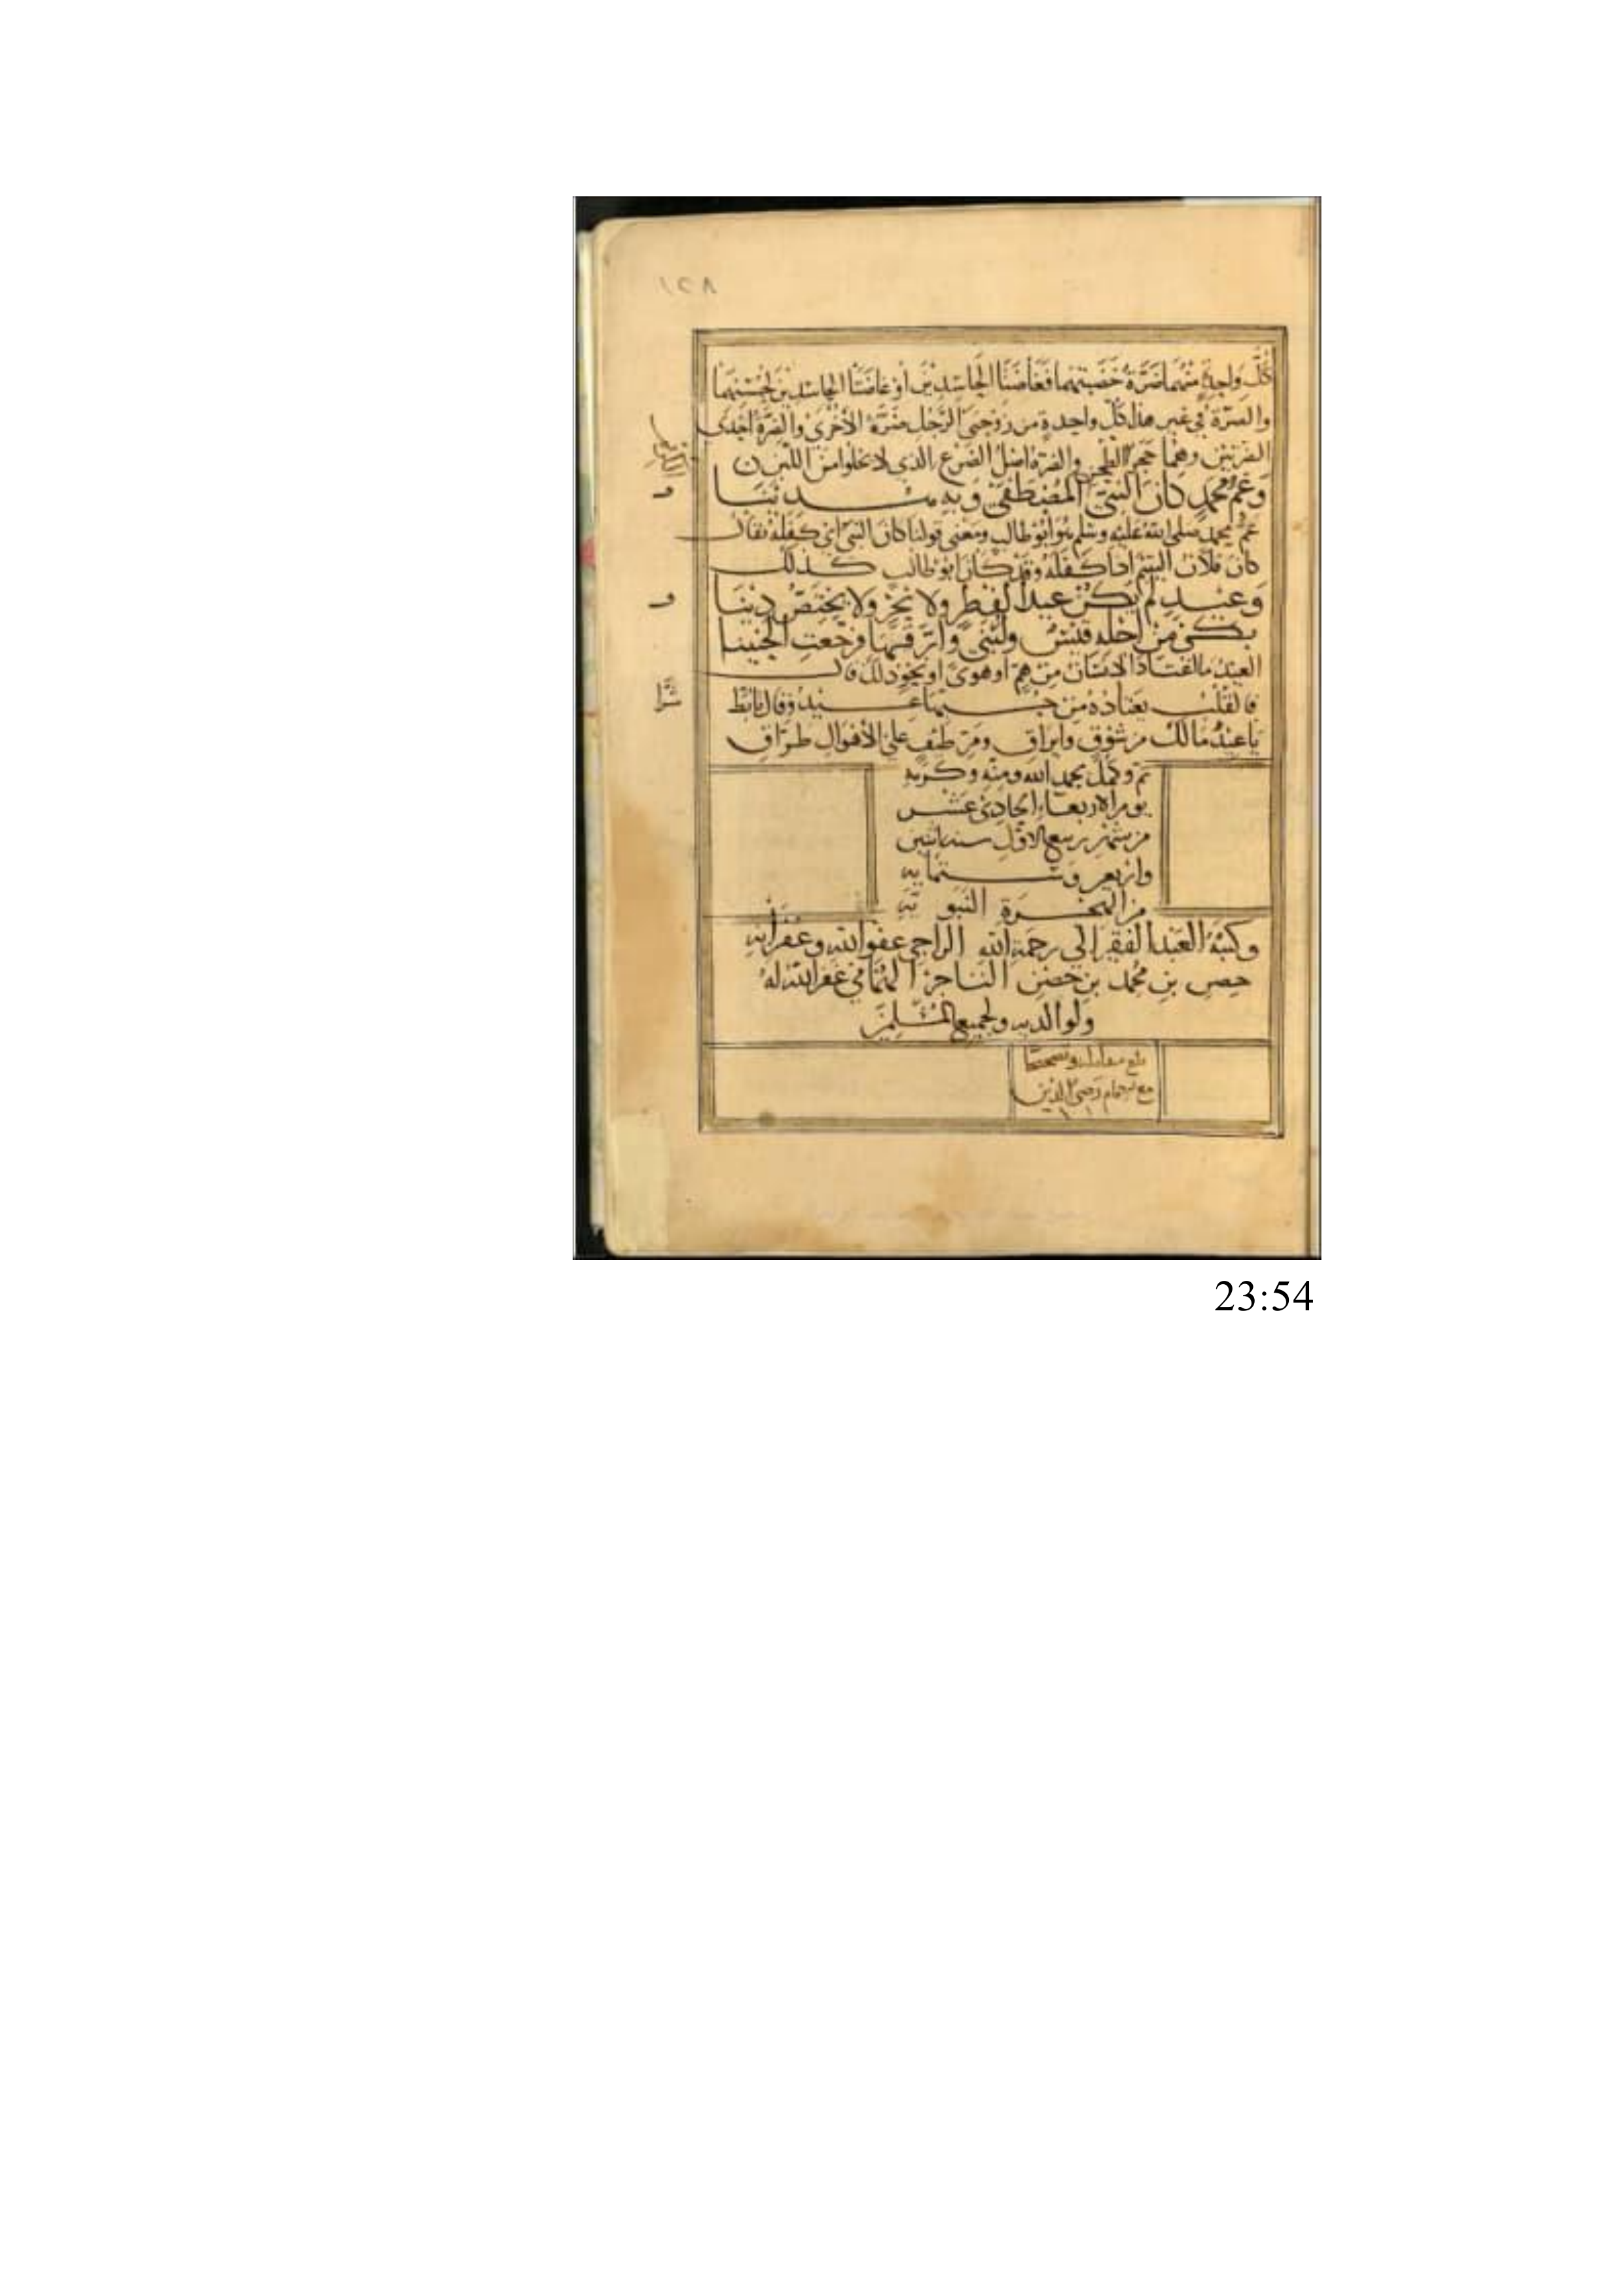 ١٢٨
كل واحدة منهما ضرة خصبتهما فغاضتا الحاسدين أو غاضتا الحاسدين لحسنهما
والضرة في غير هذا كل واحدة من زوجتي الرجل ضرة الأخرى والضرة إحدى
الضرتين وهما حجر الطحن والضرة أصل الضرع الذي لا يخلوا من اللبن
وعم محمد كان النبي المصطفى وبه
عم محمد صلى الله عليه وسلم هو أبو طالب ومعنى قولنا كان النبي أي كفله يقال
كان فلان اليتيم اذا كفله وقد كان ابو طالب كذلك
وعيد لم يكن عيد الفطر ولا نحر ولا يختص دينا
من أجله قيس ولبنى
العيد ما اعتاد الانسان من هم او هوى او نحو ذلك قال
فالقلب يعتاده من حبها عيد وقال تابط
شرا
يا عيد مالك من شوق وايراق ومر طيف على الأهوال طراق
تم وكمل بحمد الله ومنه وكرمه
يوم الاربعاء الحادي عشر
من شهر ربيع الاول سنة اثنين
واربعين وستمايه
من الهجرة النبوية
وكتبه العبد الفقير إلى رحمة الله الراجي عفو الله وغفرانه
بن محمد بن التاجر غفر الله له
ولوالديه ولجميع المسلمين
بلغ مقابلة وتصحيحا
مع رضي الدين
23:54